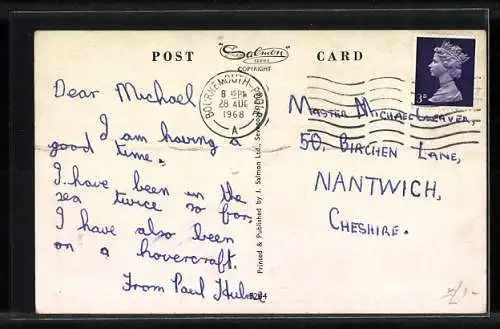 POST "Salmon" CARD
SERIES
COPYRIGHT
Dear Michael
I am having a
good time.
I have been in the
sea twice so far.
I have also been
on a hovercraft.
From Paul Hulme
BOURNEMOUTH-POOLE
8 15PM
28 AUG
1968
A
3D
MASTER MICHAEL CLEAVER,
50, BIRCHEN LANE,
NANTWICH,
CHESHIRE.
Printed & Published by J. Salmon Ltd., Sevenoaks